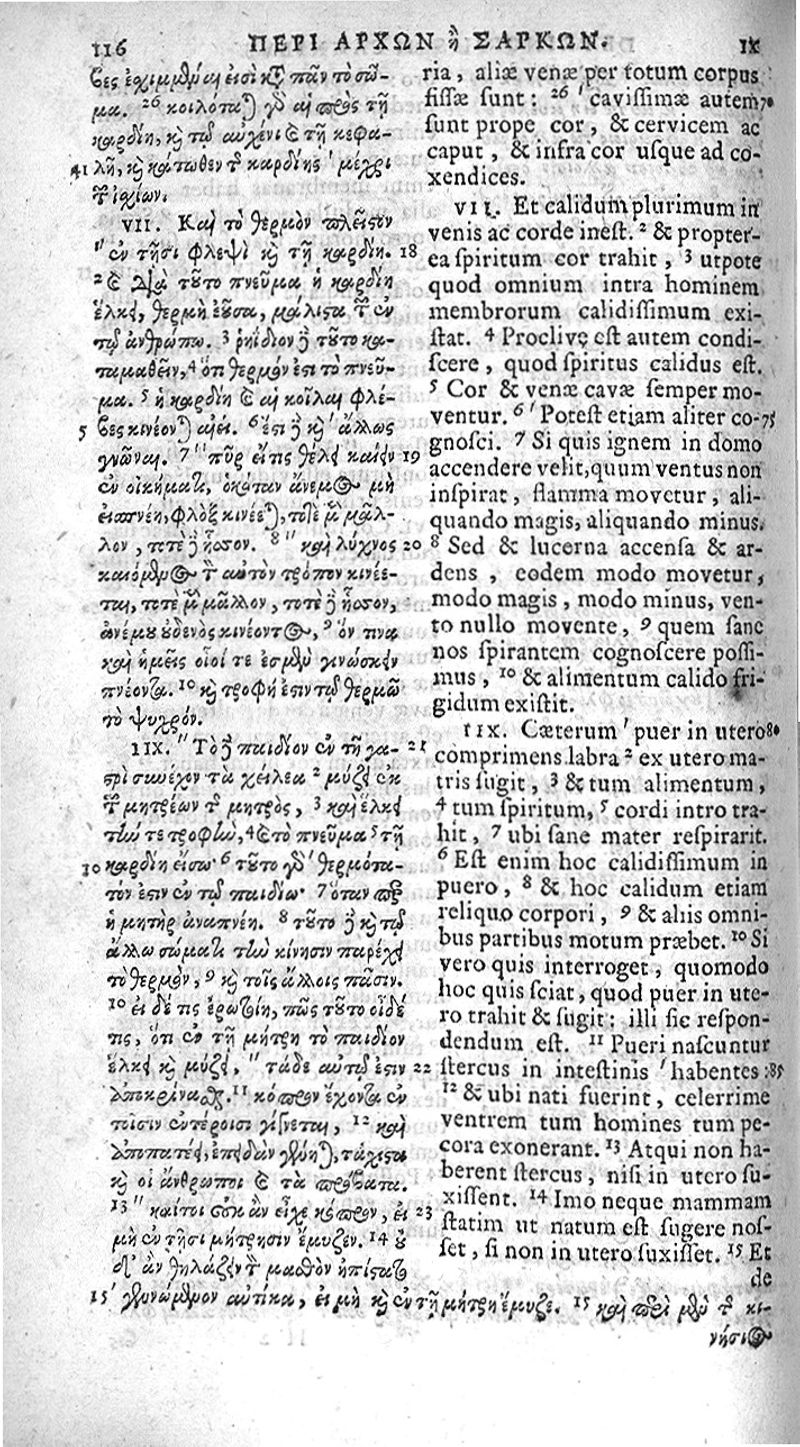 116 ΠΕΡΙ ΑΡΧΩΝ ἢ ΣΑΡΚΩΝ. IX
βες ἐχόμεναι εἰσὶ κατὰ πᾶν τὸ σῶ-
μα. 26 κοιλόταται γὰρ αἱ πρὸς τῇ
καρδίῃ, καὶ τῷ αὐχένι καὶ τῇ κεφα-
41 λῇ, καὶ κάτωθεν τῆς καρδίης ' μέχρι
τῶν ἰσχίων.
VII. Καὶ τὸ θερμὸν πλεῖστον
" ἐν τῇσι φλεψὶ καὶ τῇ καρδίῃ. 18
2 καὶ διὰ τοῦτο πνεῦμα ἡ καρδίη
ἕλκει, θερμὴ ἐοῦσα, μάλιστα τῶν ἐν
τῷ ἀνθρώπῳ. 3 ῥηίδιον δὲ τοῦτο κα-
ταμαθεῖν, 4 ὅτι θερμόν ἐστι τὸ πνεῦ-
μα. 5 ἡ καρδίη καὶ αἱ κοῖλαι φλέ-
5 βες κινέονται αἰεί. 6 ἔστι δὲ καὶ ' ἄλλως
γνῶναι. 7 " πῦρ εἴ τις θέλει καίειν 19
ἐν οἰκήματι, ὁκόταν ἄνεμος μὴ
εἰσπνέῃ, φλὸξ κινέεται, τοτὲ μὲν μᾶλ-
λον, ποτὲ δὲ ἧσσον. 8 " καὶ λύχνος 20
καιόμενος τὸν αὐτὸν τρόπον κινέε-
ται, ποτὲ μὲν μᾶλλον, ποτὲ δὲ ἧσσον,
ἀνέμου οὐδενὸς κινέοντος, 9 ὅν τινα
καὶ ἡμεῖς οἷοί τε ἐσμὲν γινώσκειν
πνέοντα. 10 καὶ τροφή ἐστιν τῷ θερμῷ
τὸ ψυχρόν.
IIX. " Τὸ δὲ παιδίον ἐν τῇ γα- 21
στρὶ συνέχον τὰ χείλεα 2 μύζει ἐκ
τῶν μητρέων τῆς μητρὸς, 3 καὶ ἕλκει
τήν τε τροφὴν, 4 καὶ τὸ πνεῦμα 5 τῇ
10 καρδίῃ εἴσω· 6 τοῦτο γὰρ ' θερμότα-
τόν ἐστιν ἐν τῷ παιδίῳ· 7 ὅταν περ
ἡ μητὴρ ἀναπνέῃ. 8 τοῦτο δὲ καὶ τῷ
ἄλλῳ σώματι τὴν κίνησιν παρέχει
τὸ θερμὸν, 9 καὶ τοῖς ἄλλοις πᾶσιν.
10 εἰ δέ τις ἐρωτῴη, πῶς τοῦτο οἶδέ
τις, ὅτι ἐν τῇ μήτρῃ τὸ παιδίον
ἕλκει καὶ μύζει, " τάδε αὐτῷ ἐστιν 22
ἀποκρίνασθαι. 11 κόπρον ἔχοντα ἐν
τοῖσιν ἐντέροισι γίγνεται, 12 καὶ
ἀποπατέει, ἐπειδὰν γένηται, τάχιστα
καὶ οἱ ἄνθρωποι καὶ τὰ πρόβατα.
13 " καίτοι οὐκ ἂν εἶχε κόπρον, εἰ 23
μὴ ἐν τῇσι μήτρῃσιν ἔμυζεν. 14 οὐ
δ' ἂν θηλάζειν τὸν μασθὸν ἠπίστατο
15' γενόμενον αὐτίκα, εἰ μὴ καὶ ἐν τῇ μήτρῃ ἔμυζε. 15 καὶ περὶ μὲν τῆς κι-
νήσιος
ria, aliæ venæ per totum corpus
fiſſæ ſunt: 26 ' caviſſimæ autem 70
ſunt prope cor, & cervicem ac
caput, & infra cor uſque ad co-
xendices.
VII. Et calidum plurimum in
venis ac corde ineſt. 2 & propter-
ea ſpiritum cor trahit, 3 utpote
quod omnium intra hominem
membrorum calidiſſimum exi-
ſtat. 4 Proclive eſt autem condi-
ſcere, quod ſpiritus calidus eſt.
5 Cor & venæ cavæ ſemper mo-
ventur. 6 ' Poteſt etiam aliter co- 75
gnoſci. 7 Si quis ignem in domo
accendere velit, quum ventus non
inſpirat, flamma movetur, ali-
quando magis, aliquando minus.
8 Sed & lucerna accenſa & ar-
dens, eodem modo movetur,
modo magis, modo minus, ven-
to nullo movente, 9 quem ſane
nos ſpirantem cognoſcere poſſi-
mus, 10 & alimentum calido fri-
gidum exiſtit.
IIX. Cæterum ' puer in utero 80
comprimens labra 2 ex utero ma-
tris ſugit, 3 & tum alimentum,
4 tum ſpiritum, 5 cordi intro tra-
hit, 7 ubi ſane mater reſpirarit.
6 Eſt enim hoc calidiſſimum in
puero, 8 & hoc calidum etiam
reliquo corpori, 9 & aliis omni-
bus partibus motum præbet. 10 Si
vero quis interroget, quomodo
hoc quis ſciat, quod puer in ute-
ro trahit & ſugit: illi ſic reſpon-
dendum eſt. 11 Pueri naſcuntur
ſtercus in inteſtinis ' habentes: 85
12 & ubi nati fuerint, celerrime
ventrem tum homines tum pe-
cora exonerant. 13 Atqui non ha-
berent ſtercus, niſi in utero ſu-
xiſſent. 14 Imo neque mammam
ſtatim ut natum eſt ſugere noſ-
ſet, ſi non in utero ſuxiſſet. 15 Et
de